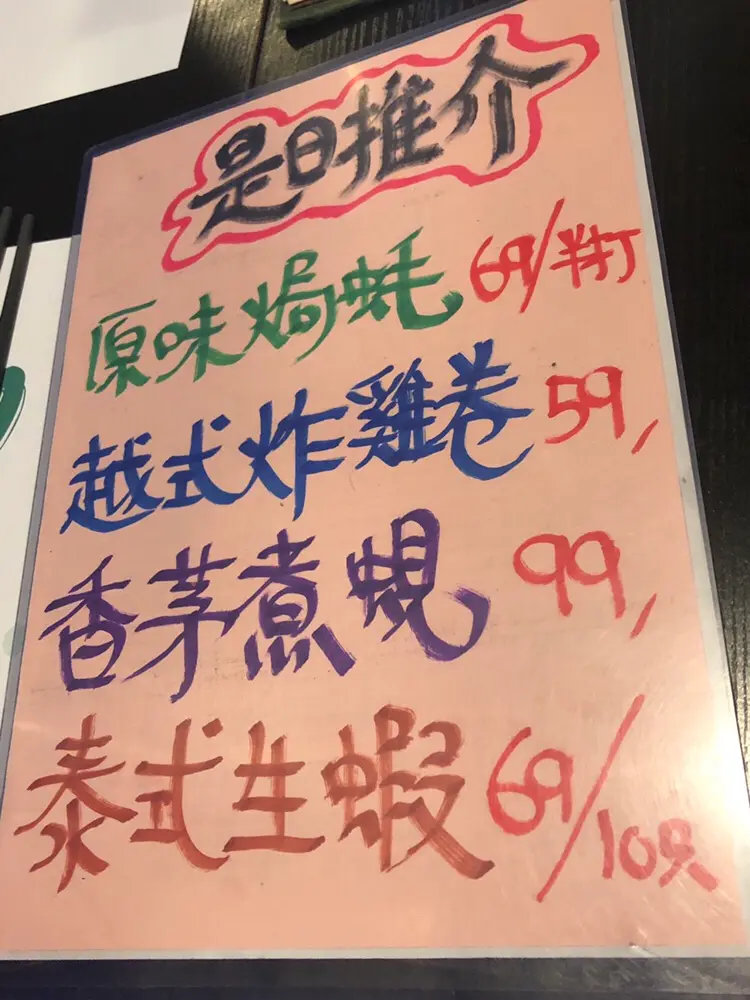 是日推介
原味焗蚝 69/半打
越式炸雞卷 59,
香茅煮蜆 99,
泰式生蝦 69/10只